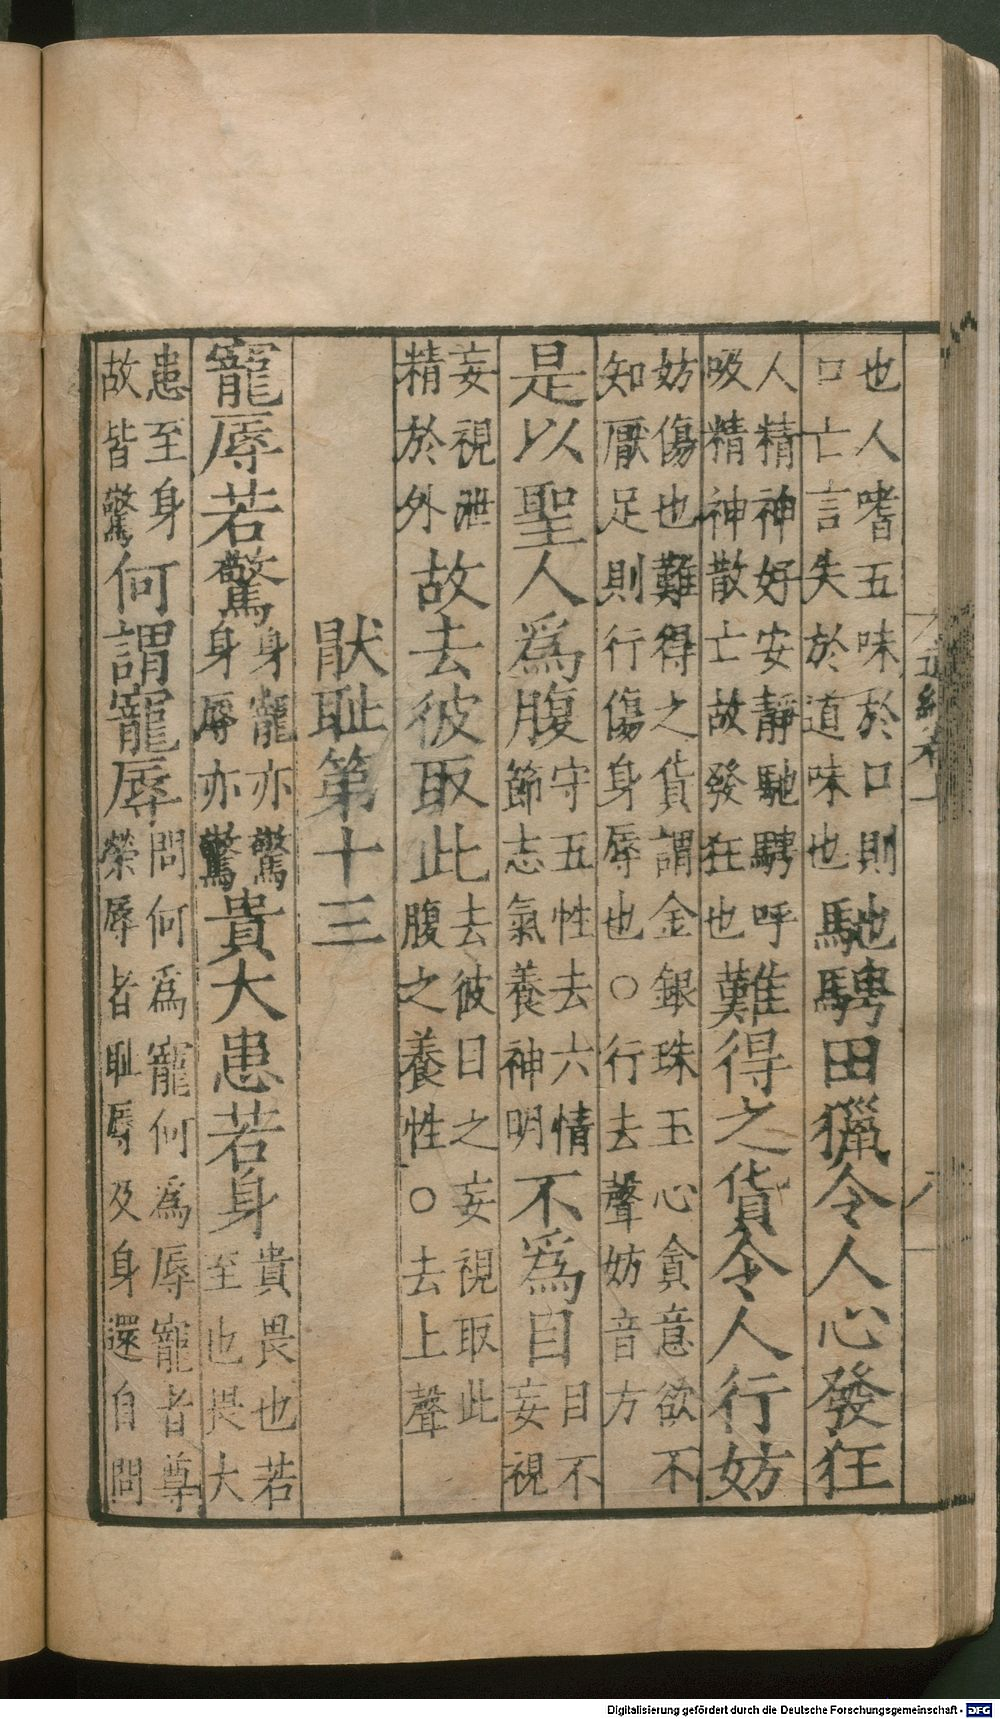 道經卷一
八
也人嗜五味於口則口亡言失於道味也馳騁田獵令人心發狂
人精神好安靜馳騁呼吸精神散亡故發狂也難得之貨令人行妨
妨傷也難得之貨謂金銀珠玉心貪意欲不知厭足則行傷身辱也○行去聲妨音方
是以聖人爲腹守五性去六情節志氣養神明不爲目目不妄視
妄視泄精於外故去彼取此去彼目之妄視取此腹之養性○去上聲
猒耻第十三
寵辱若驚身寵亦驚身辱亦驚貴大患若身貴畏也若至也畏大
患至身故皆驚何謂寵辱問何爲寵何爲辱寵者尊榮辱者耻辱及身還自問
Digitalisierung gefördert durch die Deutsche Forschungsgemeinschaft - DFG